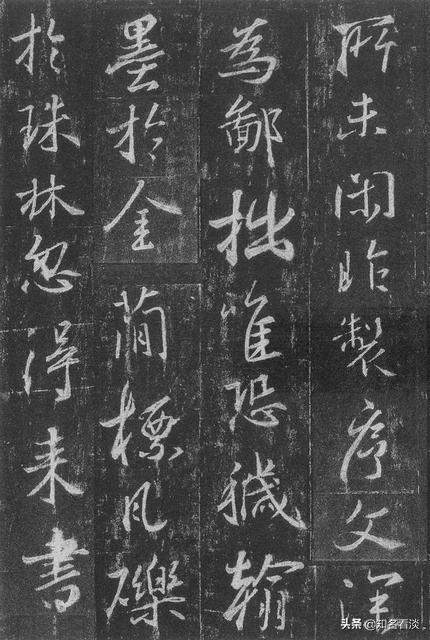 所未閑昨製序文深
為鄙拙唯恐穢翰
墨於金蕳標瓦礫
於珠林忽得来書
头条 @知名看淡